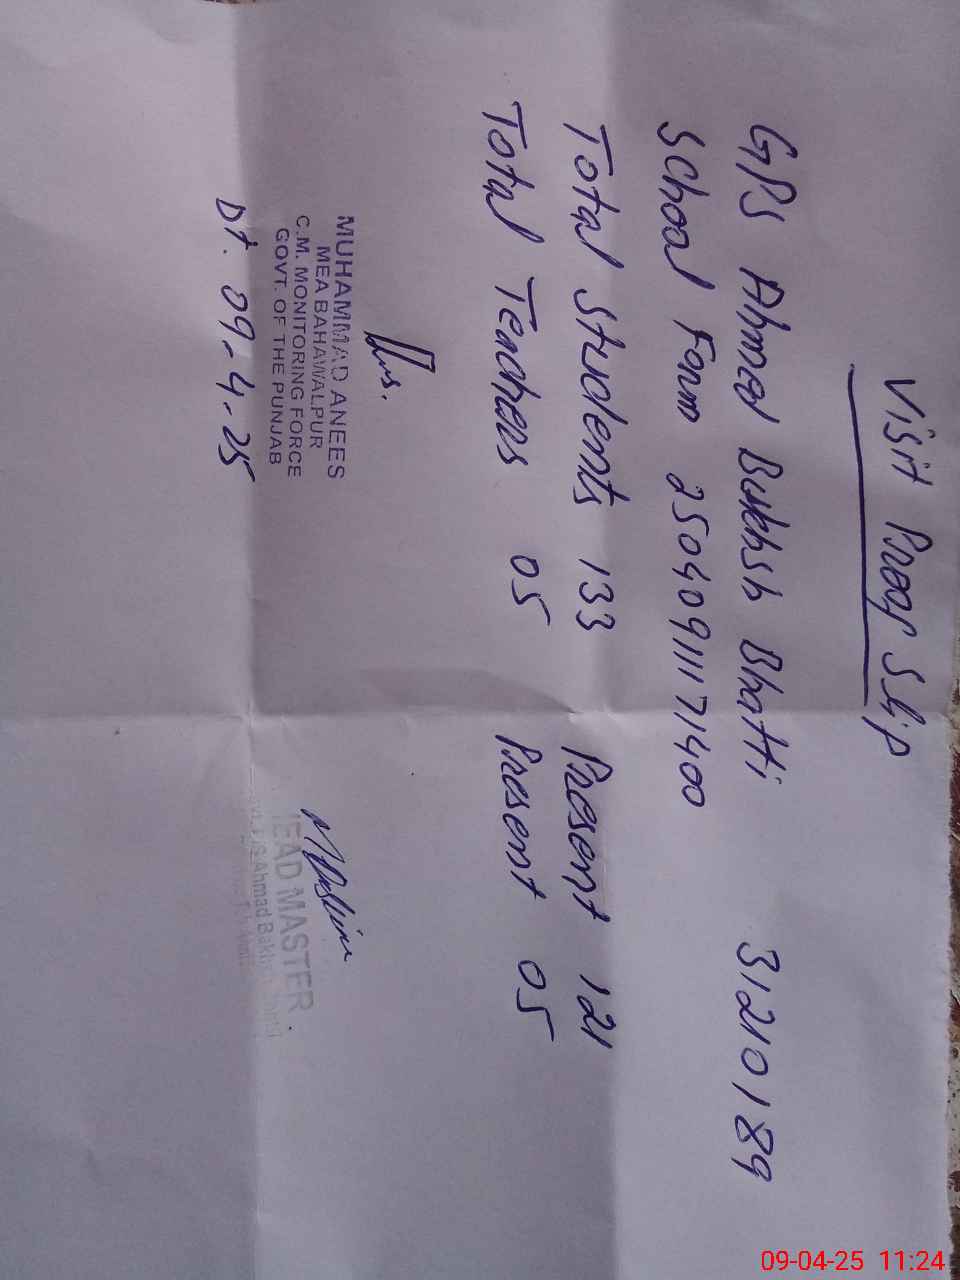 Visit Proof Slip
GPS Ahmad Bukhsh Bhatti 31210189
School Form 25040911171400
Total Students 133 Present 121
Total Teachers 05 Present 05
MUHAMMAD ANEES
MEA BAHAWALPUR
C.M. MONITORING FORCE
GOVT. OF THE PUNJAB
Dt. 09-4-25
HEAD MASTER
Ahmad Bakhsh
09-04-25 11:24